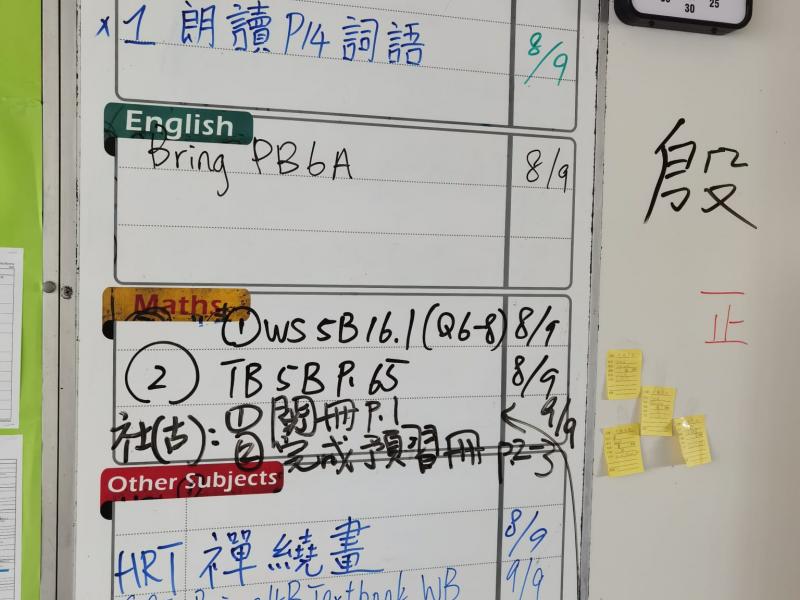 x 1 朗讀 P14 詞語 8/9
English
Bring PB6A 8/9
Maths
① WS 5B 16.1 (Q6-8) 8/9
② TB 5B P. 65 8/9
社(古): ① 閱冊 P.1 9/9
② 完成預習冊 P2-3
Other Subjects
HRT 禪繞畫 8/9
Textbook WB 9/9
殷
正
25
30